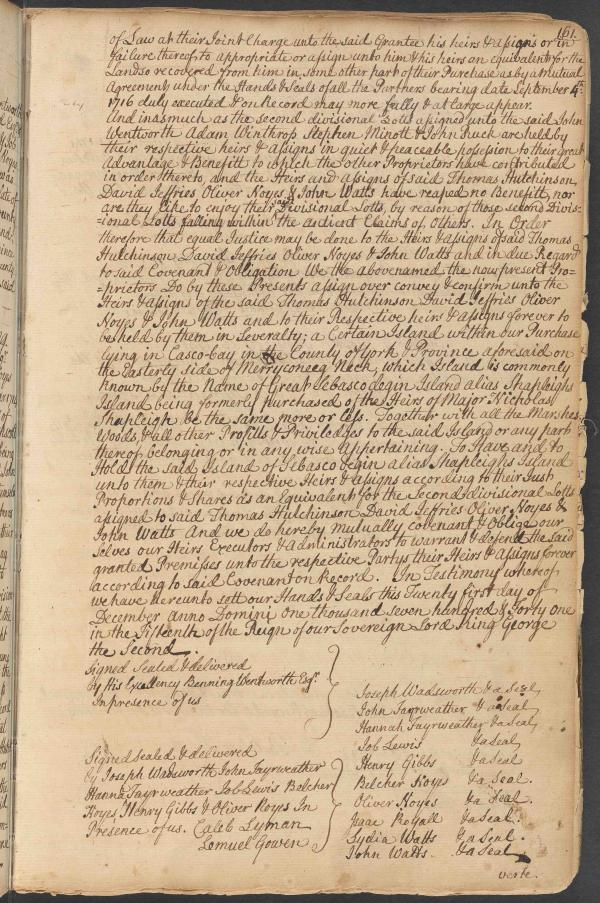 161.
of Law at their Joint Charge unto the said Grantee his heirs & assigns or in
failure thereof to appropriate or assign unto him & his heirs an equivalent for the
Land so recovered from him in some other part of their Purchase as by a Mutual
Agreement under the Hands & Seals of all the Partners bearing date September 4th
1716 duly executed & on Record may more fully & at large appear.
And inasmuch as the second divisional Lotts assigned unto the said John
Wentworth Adam Winthrop Stephen Minott & John Ruck are held by
their respective heirs & assigns in quiet & peaceable possession to their great
Advantage & Benefitt to which the other Proprietors have contributed
in order thereto, and the Heirs and assigns of said Thomas Hutchinson
David Jeffries Oliver Noyes & John Watts have reaped no Benefitt, nor
are they like to enjoy their said Divisional Lotts, by reason of those second Divis=
=ional Lotts falling within the antient Claims of Others. In Order
therefore that equal Justice may be done to the Heirs & assigns of said Thomas
Hutchinson David Jeffries Oliver Noyes & John Watts and in due Regard
to said Covenant & Obligation We the abovenamed the now present Pro=
=prietors Do by these Presents assign over convey & confirm unto the
Heirs & assigns of the said Thomas Hutchinson David Jefries Oliver
Noyes & John Watts and to their Respective heirs & assigns forever to
be held by them in Severalty; a Certain Island within our Purchase
lying in Casco-bay in the County of York & Province aforesaid on
the Easterly side of Merryconeeg Neck, which Island is commonly
known by the Name of Great Sebascodegin Island alias Shapleighs
Island being formerly purchased of the Heirs of Major Nicholas
Shapleigh be the same more or less. Together with all the Marshes
Woods, & all other Profitts & Priviledges to the said Island or any part
thereof belonging or in any wise Appertaining. To Have and to
Hold the said Island of Sebascodegin alias Shapleighs Island
unto them & their respective Heirs & assigns according to their Just
Proportions & Shares as an Equivalent for the Second divisional Lotts
assigned to said Thomas Hutchinson David Jefries Oliver Noyes &
John Watts And we do hereby mutually covenant & Oblige our
selves our Heirs Executors & administrators to warrant & defend the said
granted Premisses unto the respective Partys their Heirs & Assigns forever
according to said Covenant on Record. In Testimony whereof
we have hereunto sett our Hands & Seals this Twenty first day of
December Anno Domini One thousand seven hundred & Forty one
in the Fifteenth of the Reign of our Sovereign Lord King George
the Second.
Signed Sealed & delivered
by His Excellency Benning Wentworth Esqr.
In presence of us
Signed sealed & delivered
by Joseph Wadsworth John Fayrweather
Hannah Fayrweather Job Lewis Belcher
Noyes Henry Gibbs & Oliver Noyes In
Presence of us. Caleb Lyman
Lemuel Gowen
Joseph Wadsworth & a Seal
John Fayrweather & a Seal
Hannah Fayrweather & a Seal
Job Lewis & a Seal
Henry Gibbs & a Seal
Belcher Noyes & a Seal
Oliver Noyes & a Seal
Isaac Royall & a Seal
Lydia Watts & a Seal
John Watts & a Seal
verte.